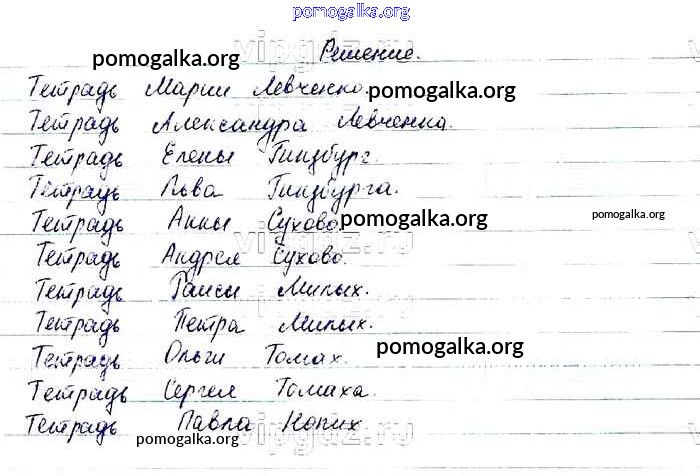 pomogalka.org
Решение.
Тетрадь Марии Левченко. pomogalka.org
pomogalka.org
Тетрадь Александра Левченка.
Тетрадь Елены Гинзбург.
Тетрадь Льва Гинзбурга.
Тетрадь Анны Сухово. pomogalka.org pomogalka.org
vipgdz.ru
Тетрадь Андрея Сухово.
Тетрадь Раисы Милых.
Тетрадь Петра Милых.
Тетрадь Ольги Томах. pomogalka.org
Тетрадь Сергея Томаха.
Тетрадь Павла
pomogalka.org
vipgdz.ru